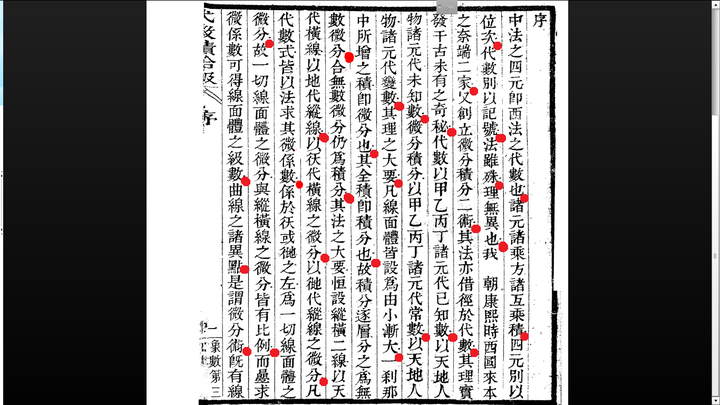 序
中法之四元卽西法之代數也諸元諸乘方諸互乘積四元別以
位次代數別以記號法雖殊理無異也我 朝康熙時西國來本
之柰端二家又創立微分積分二術其法亦借徑於代數其理實
發千古未有之奇秘代數以甲乙丙丁諸元代已知數以天地人
物諸元代未知數微分積分以甲乙丙丁諸元代常數以天地人
物諸元代變數其理之大要凡線面體皆設爲由小漸大一刹那
中所增之積卽微分也其全積卽積分也故積分逐層分之爲無
數微分合無數微分仍爲積分其法之大要恒設縱橫二線以天
代橫線以地代縱線以彳天代橫線之微分以彳地代縱線之微分凡
代數式皆以法求其微係數係於彳天或彳地之左爲一切線面體之
微分故一切線面體之微分與縱橫線之微分皆有比例而疊求
微係數可得線面體之級數曲線之諸異點是謂微分術旣有線
代微積拾級 序 一 象數第三